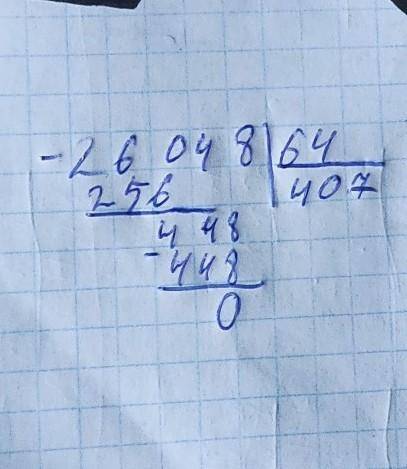 - 26 048 | 64
256 | 407
448
- 448
0